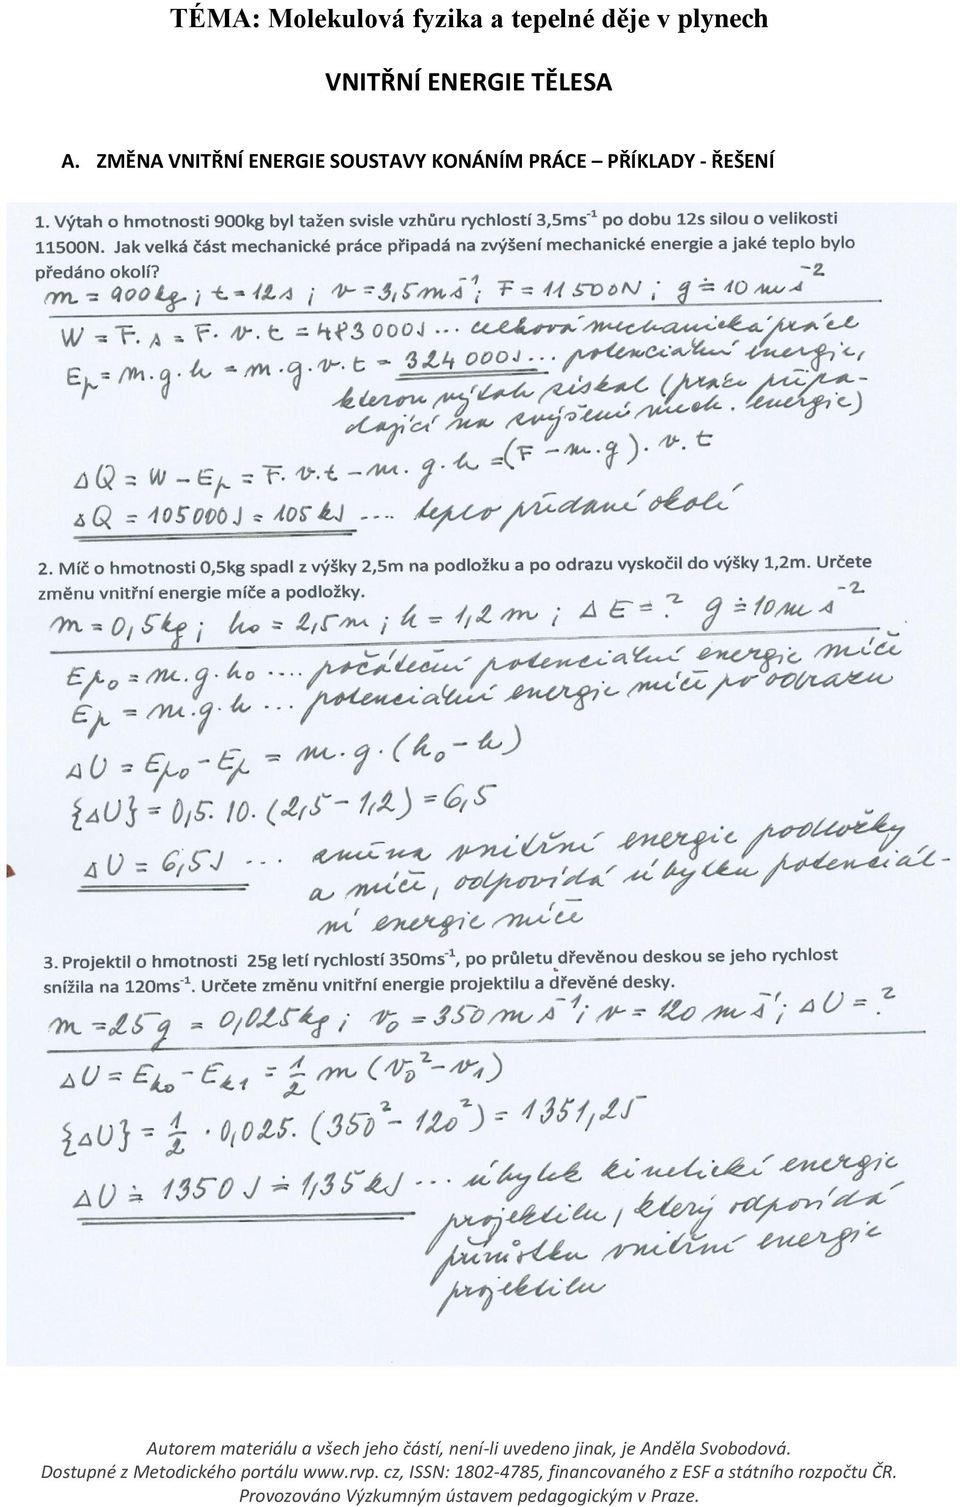 TÉMA: Molekulová fyzika a tepelné děje v plynech
VNITŘNÍ ENERGIE TĚLESA
A. ZMĚNA VNITŘNÍ ENERGIE SOUSTAVY KONÁNÍM PRÁCE – PŘÍKLADY - ŘEŠENÍ
1. Výtah o hmotnosti 900kg byl tažen svisle vzhůru rychlostí 3,5ms⁻¹ po dobu 12s silou o velikosti
11500N. Jak velká část mechanické práce připadá na zvýšení mechanické energie a jaké teplo bylo
předáno okolí?
m = 900kg ; t = 12s ; v = 3,5ms⁻¹ ; F = 11500N ; g ≐ 10 ms⁻²
W = F. s = F. v. t = 483000J ... celková mechanická práce
Ep = m. g. h = m. g. v. t = 324000J ... potenciální energie,
kterou výtah získal (práce připa-
dající na zvýšení mech. energie)
ΔQ = W - Ep = F. v. t - m. g. h = (F - m. g). v. t
ΔQ = 105000J = 105kJ .... teplo předané okolí
2. Míč o hmotnosti 0,5kg spadl z výšky 2,5m na podložku a po odrazu vyskočil do výšky 1,2m. Určete
změnu vnitřní energie míče a podložky.
m = 0,5kg ; h₀ = 2,5m ; h = 1,2m ; ΔE = ? g ≐ 10ms⁻²
Ep₀ = m. g. h₀ .... počáteční potenciální energie míče
Ep = m. g. h ... potenciální energie míče po odrazu
ΔU = Ep₀ - Ep = m. g. (h₀ - h)
{ΔU} = 0,5. 10. (2,5 - 1,2) = 6,5
ΔU = 6,5J ... změna vnitřní energie podložky
a míče, odpovídá úbytku potenciál-
ní energie míče
3. Projektil o hmotnosti 25g letí rychlostí 350ms⁻¹, po průletu dřevěnou deskou se jeho rychlost
snížila na 120ms⁻¹. Určete změnu vnitřní energie projektilu a dřevěné desky.
m = 25g = 0,025kg ; v₀ = 350ms⁻¹ ; v = 120ms⁻¹ ; ΔU = ?
ΔU = Ek₀ - Ek₁ = 1/2 m (v₀² - v₁²)
{ΔU} = 1/2 . 0,025. (350² - 120²) = 1351,25
ΔU ≐ 1350J ≐ 1,35kJ ... úbytek kinetické energie
projektilu, který odpovídá
přírůstku vnitřní energie
projektilu
Autorem materiálu a všech jeho částí, není-li uvedeno jinak, je Anděla Svobodová.
Dostupné z Metodického portálu www.rvp. cz, ISSN: 1802-4785, financovaného z ESF a státního rozpočtu ČR.
Provozováno Výzkumným ústavem pedagogickým v Praze.